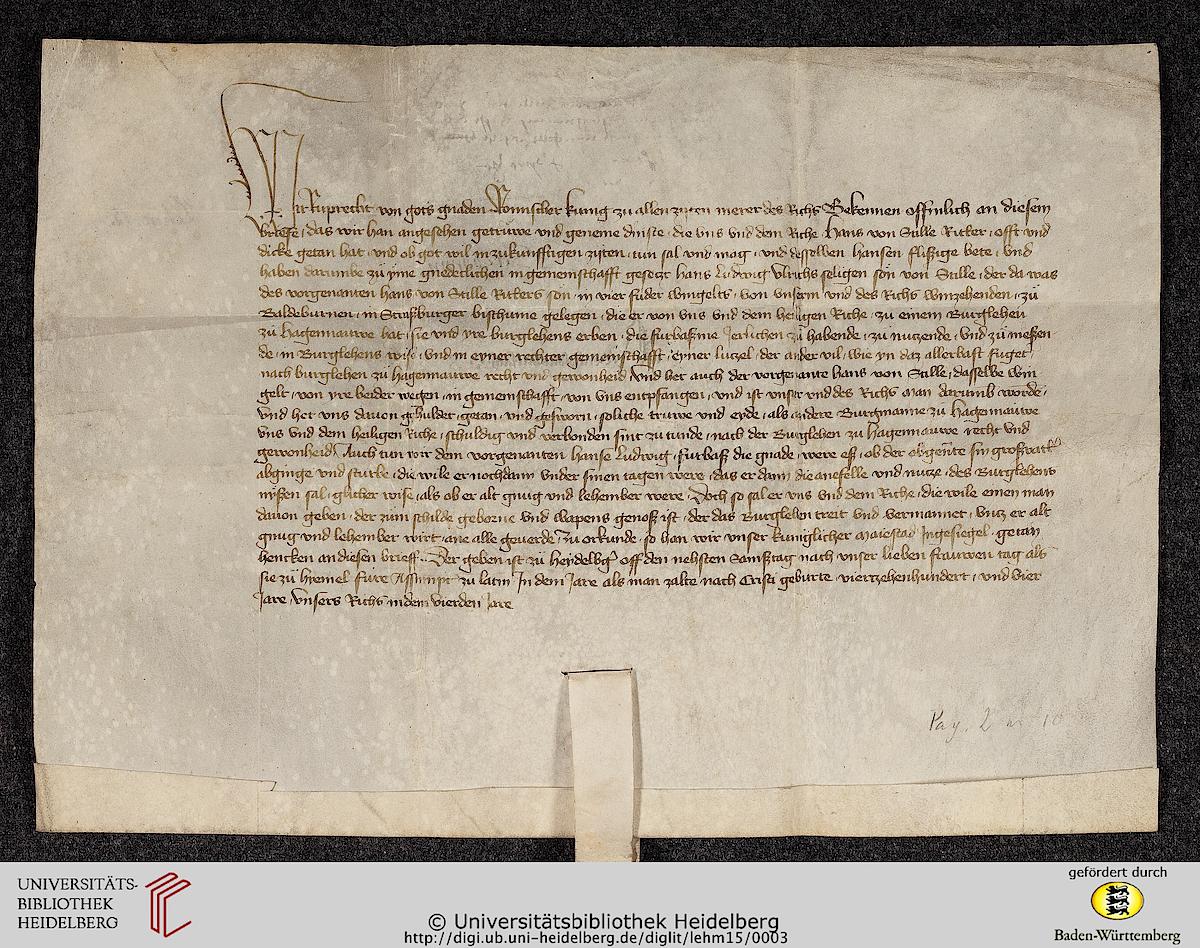 Wir Ruprecht von gots gnaden Romischer kunig zu allen zijten merer des Richs Bekennen offinlich an diesem
brieffe, das wir han angesehen getruwe und geneme dinste, die uns und dem Riche Hans von Stille Ritter, offt und
dicke getan hat, und ob got wil inzukunfftigen zijten, tun sal und mag, und desselben Hansen flißige bete, und
haben darumbe zu yme gnediclichen in gemeinschafft gesetzt Hans Ludwig Ulrichs seligen son von Stille, der da was
des vorgenanten Hans von Stille Ritters son, in vier fuder wingelts, von unserm und des Richs winzehenden, zu
Baldeburnen, in Straßburger bischtume gelegen, die er von uns und dem heiligen Riche, zu einem Burglehen
zu Hagennauwe hat, sie und yre burglehens erben, die furbaßme Jerlichen zu habende, zu nutzende, und zu nießen
de, in Burglehens wise, und in eyner rechter gemeinschafft, eyner lutzel, der ander vil, wie yn daz allerbast fuget
nach burglehen zu Hagennauwe recht und gewonheid, Und het auch der vorgenante Hans von Stille, dasselbe win
gelt, von yre beider wegen, in gemeinschafft, von uns entpfangen, und ist unser und des Richs man darumb worden,
und het uns davon gehuldet, getan, und gesworn, soliche truwe und eyde, als andere Burgmanne zu Hagennauwe
uns und dem heiligen Riche, schuldig und verbonden sint zu tunde, nach der Burglehen zu Hagennauwe recht und
gewonheid, Auch tun wir dem vorgenanten Hanse Ludwig, furbaß die gnade, were eß, ob der obgenante sin großvatter
abginge und sturbe, die wile er nochdann under sinen tagen were, das er dann die anefelle und nutze, des Burglehens
nyßen sal, glicher wise, als ob er alt gnug und lehember were, Doch so sal er uns und dem Riche, die wile einen man
davon geben, der zum schilde geborne und wapens genoß ist, der das Burglehen treit und vermannet, untz er alt
gnug und lehember wirt, ane alle geverde, Zu orkunde, so han wir unser kuniglicher maiestad Ingesiegel, getan
hencken an diesen brieff, Der geben ist zu Heydelberg off den nehsten Samßtag nach unser lieben frauwen tag als
sie zu hymel fure Assumpt zu latin In dem Jare als man zalte nach Cristi geburte viertzehenhundert, und vier
Jare, unsers Richs in dem vierden Jare
Pay. 2
UNIVERSITÄTS-
BIBLIOTHEK
HEIDELBERG
© Universitätsbibliothek Heidelberg
http://digi.ub.uni-heidelberg.de/diglit/lehm15/0003
gefördert durch
Baden-Württemberg